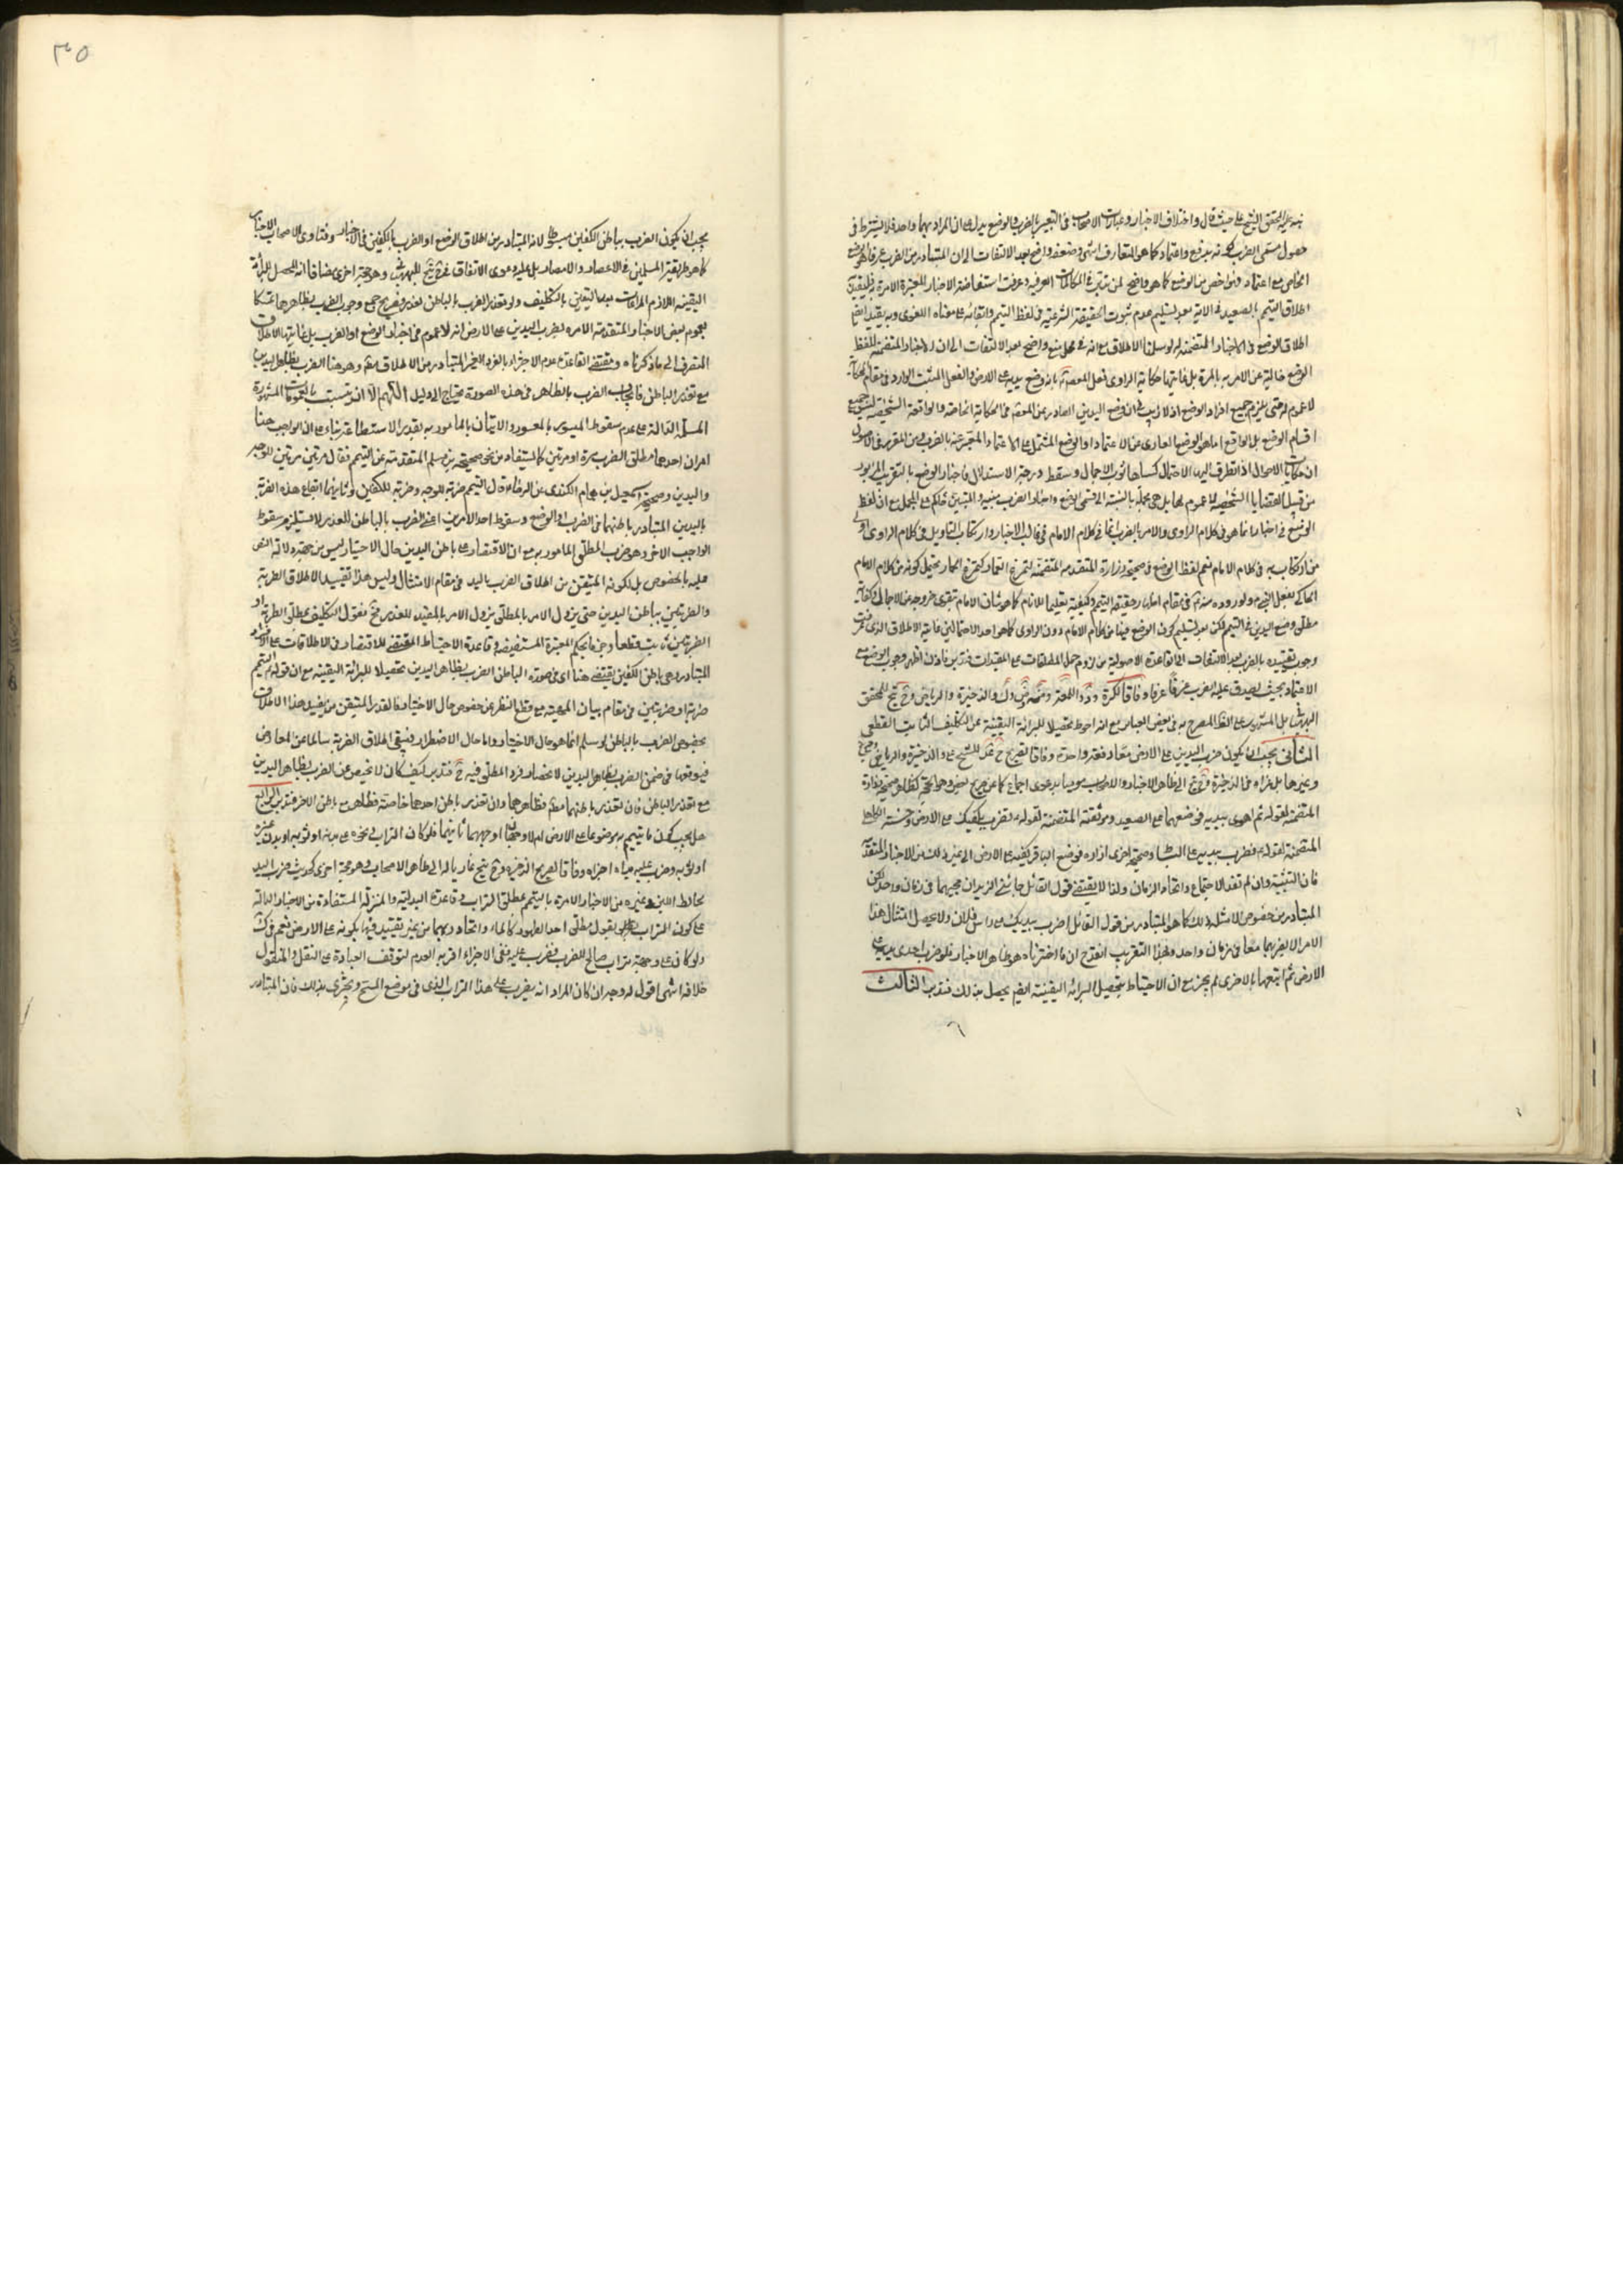 نبه عليه المحقق الشيخ علي حيث قال واختلاف الاخبار وعبارات الاصحاب في التعبير بالضرب والوضع يدل على ان المراد بهما واحد فلا يشترط في
حصول مسمى الضرب كونه بدفع واعتماد كما هو المتعارف انتهى وضعفه واضح بعد الالتفات الى ان المتبادر من الضرب عرفا هو الوضع
الخاص مع اعتماد فهو اخص من الوضع كما هو واضح لمن تتبع في المكالمات العرفية وعرفت استفاضة الاخبار المعتبرة الامرة به فليقيد
اطلاق التيمم بالصعيد في الاية بعد تسليم عدم ثبوت الحقيقة الشرعية في لفظ التيمم وابقائه على معناه اللغوى وبه يقيد ايضا
اطلاق الوضع في الاخبار المتضمنة له لو سلمنا الاطلاق مع انه في محل منع واضح بعد الالتفات الى ان الاخبار المتضمنة للفظ
الوضع خالية عن الامر به بالمرة بل غايتها حكاية الراوى فعل المعصوم بانه وضع يديه على الارض والفعل المثبت الوارد في مقام الحكاية
لا عموم له حتى يلزم جميع افراد الوضع اذ لا ريب في ان وضع اليدين الصادر من المعصوم في الحكاية الخاصة والواقعة الشخصية لم يستوعب جميع
اقسام الوضع بل الواقع اما هو الوضع العارى عن الاعتماد او الوضع المشتمل على الاعتماد المعبر عنه بالضرب ومن المقرر في الاصول
ان حكايات الاحوال اذا تطرق اليها الاحتمال كساها ثوب الاجمال وسقط درجة الاستدلال فاخبار الوضع بالتقريب المزبور
من قبيل القضايا الشخصية لا عموم لها بل هي مجملة بالنسبة الى قسمي الوضع واخبار الضرب مبينة والمبين حاكم على المجمل مع ان لفظ
الوضع في اخبارنا انما هو في كلام الراوى والامر بالضرب انما في كلام الامام في غالب الاخبار وارتكاب التاويل في كلام الراوى اولى
من ارتكابه في كلام الامام نعم لفظ الوضع في صحيحة زرارة المتقدمة المتضمنة لتمرغ العمار كتمرغ الحمار يحتمل كونه من كلام الامام
الحاكي لفعل النبي ص ولوروده منه في مقام اظهار حقيقة التيمم وكيفيته تعليما للانام كما هو شان الامام تقوى خروجه عن الاجمال وكفاية
مطلق وضع اليدين في التيمم لكن بعد تسليم كون الوضع فيها من كلام الامام دون الراوى كما هو احد الاحتمالين غاية الاطلاق الذى عرفت
وجوب تقييده بالضرب بعد الالتفات الى القاعدة الاصولية من لزوم حمل المطلقات على المقيدات فتدبر فاذن اظهر وجوب الوضع مع
الاعتماد بحيث يصدق عليه الضرب عرفا وفاقا
البهبهاني بل المشهور على الظ المصرح به في بعض العبائر مع انه احوط تحصيلا للبرائة اليقينية عن التكليف الثابت القطعي
الثاني يجب ان يكون ضرب اليدين على الارض معا دفعة واحدة وفاقا لصريح
وغيرها بل عزاه في الذخيرة الى ظاهر الاخبار والاصحاب
المتضمنة لقوله ثم اهوى بيديه فوضعهما على الصعيد وموثقته المتضمنة لقوله تضرب بكفيك على الارض وحسنة الكاهلي
المتضمنة لقوله فضرب بيديه على البساط وصحيحة اخرى لزرارة فوضع الباقر كفيه على الارض الى غير ذلك من الاخبار المتقدمة
فان التثنية وان لم تفد الاجتماع واتحاد الزمان ولذا لا يقتضي قول القائل جائني الزيدان مجيئهما في زمان واحد لكن
المتبادر من خصوص الامثلة ذلك كما هو المتبادر من قول القائل اضرب بيديك على راس فلان ولا يحصل امتثال هذا
الامر الا بضربهما معا في زمان واحد ولهذا التقريب انقدح ان ما اخترناه هو ظاهر الاخبار فلو ضرب احدى يديه على
الارض ثم اتبعها بالاخرى لم يجز مع ان الاحتياط بتحصيل البرائة اليقينية ايضا يحصل بذلك فتدبر الثالث
٣٥
يجب ان يكون الضرب بباطن الكفين مبسوطا لانه المتبادر من اطلاق الوضع او الضرب بالكفين في الاخبار وفتاوى الاصحاب
كما هو طريقة المسلمين في الاعصار والامصار بل عليه دعوى الاتفاق في شرح للبهبهاني وهو حجة اخرى مضافا انه المحصل للبرائة
اليقينية اللازم المراعات بعد التيقن بالتكليف ولو تعذر الضرب بالباطن لعذر فصريح جمع وجوب الضرب بظاهرهما تمسكا
بعموم بعض الاخبار المتقدمة الامرة بضرب اليدين على الارض انه لا عموم في اخبار الوضع او الضرب بل غايتها الاطلاق
المنصرف الى ما ذكرناه ومقتضى القاعدة عدم الاجتزاء بالفرد الغير المتبادر من الاطلاق مطم وهو هنا الضرب بظاهر اليدين
مع تعذر الباطن فايجاب الضرب بالظاهر في هذه الصورة يحتاج الى دليل اللهم الا ان يتشبث بالعمومات المشهورة
المسلمة الدالة على عدم سقوط الميسور بالمعسور والاتيان بالمامور به بقدر الاستطاعة بناء على ان الواجب هنا
امران احدهما مطلق الضرب مرة او مرتين كما يستفاد من نحو صحيحة بن مسلم المتقدمة عن التيمم فقال مرتين مرتين للوجه
واليدين وصحيحة اسمعيل بن همام الكندى عن الرضا قال التيمم ضربة للوجه وضربة للكفين وثانيهما ايقاع هذه الضربة
باليدين المتبادر باطنهما في الضرب او الوضع وسقوط احد الامرين اعني الضرب بالباطن للعذر لا يستلزم سقوط
الواجب الاخر وهو ضرب المطلق المامور به مع ان الاقتصار على باطن اليدين حال الاختيار ليس من جهة دلالة النص
عليه بالخصوص بل لكونه المتيقن من اطلاق الضرب باليد في مقام الامتثال وليس هذا تقييد الاطلاق الضربة
والضربتين بباطن اليدين حتى يزول الامر بالمطلق بزوال الامر بالمقيد للعذر فح نقول التكليف بمطلق الضربة او
الضربتين ثابت قطعا وجزما بحكم المعتبرة المستفيضة وقاعدة الاحتياط المقتضية للاقتصار في الاطلاقات على الافراد
المتبادرة وهي باطن الكفين يقتضي هنا اى في صورة الباطن الضرب بظاهر اليدين تحصيلا للبرائة اليقينية مع ان قوله التيمم
ضربة او ضربتين في مقام بيان المهية مع قطع النظر عن خصوص حال الاختيار فالقدر المتيقن من تقييد هذا الاطلاق
بخصوص الضرب بالباطن لو سلم انما هو حال الاختيار واما حال الاضطرار فيبقى اطلاق الضربة سالما عن المعارض
فيؤخذ في ضمن الضرب بظاهر اليدين لانحصار فرد المطلق فيه ح فتدبر كيف كان لا محيص عن الضرب بظاهر اليدين
مع تعذر الباطن فان تعذر باطنهما معا فظاهرهما وان تعذر باطن احدهما خاصة فظاهره مع باطن الاخر فتدبر الرابع
هل يجب كون ما يتيمم به موضوعا على الارض ام لا وجهان اوجههما ثانيهما فلو كان التراب في نحوه على بدنه او ثوبه او بدن غيره
او ثوبه وضرب عليه يداه اجزاه وفاقا لصريح الذخيرة
بحائط اللبن وغيره من الاخبار الامرة بالتيمم بمطلق التراب وقاعدة البدلية والمنزلة المستفادة من الاخبار الدالة
على كون التراب بقول مطلق احد الطهورين كالماء واتحاد ربهما من غير تقييد فيها بكونه على الارض نعم في كشف
ولو كان على وجهه تراب صالح للضرب فضرب عليه ففي الاجزاء اقربه العدم لتوقف العبادة على النقل والمنقول
خلافه انتهى اقول له وجه ان كان المراد انه يضرب على هذا التراب الذى في موضع المسح ويجتزى بذلك فان المتبادر